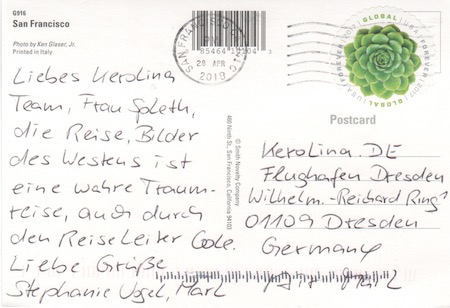 G916
San Francisco
Photo by Ken Glaser, Jr.
Printed in Italy
Liebes Kerolina
Team, Frau Spleth,
die Reise, Bilder
des Westens ist
eine wahre Traum-
reise, auch durch
den Reiseleiter Code.
Liebe Grüße
Stephanie Vogel, Marl
SAN FRANCISCO
28 APR
2018
GLOBAL
USA/FOREVER/2017
Postcard
© Smith Novelty Company
460 Ninth St., San Francisco, California 94103
Kerolina.DE
Flughafen Dresden
Wilhelm.-Reichard Ring 1
01109 Dresden
Germany